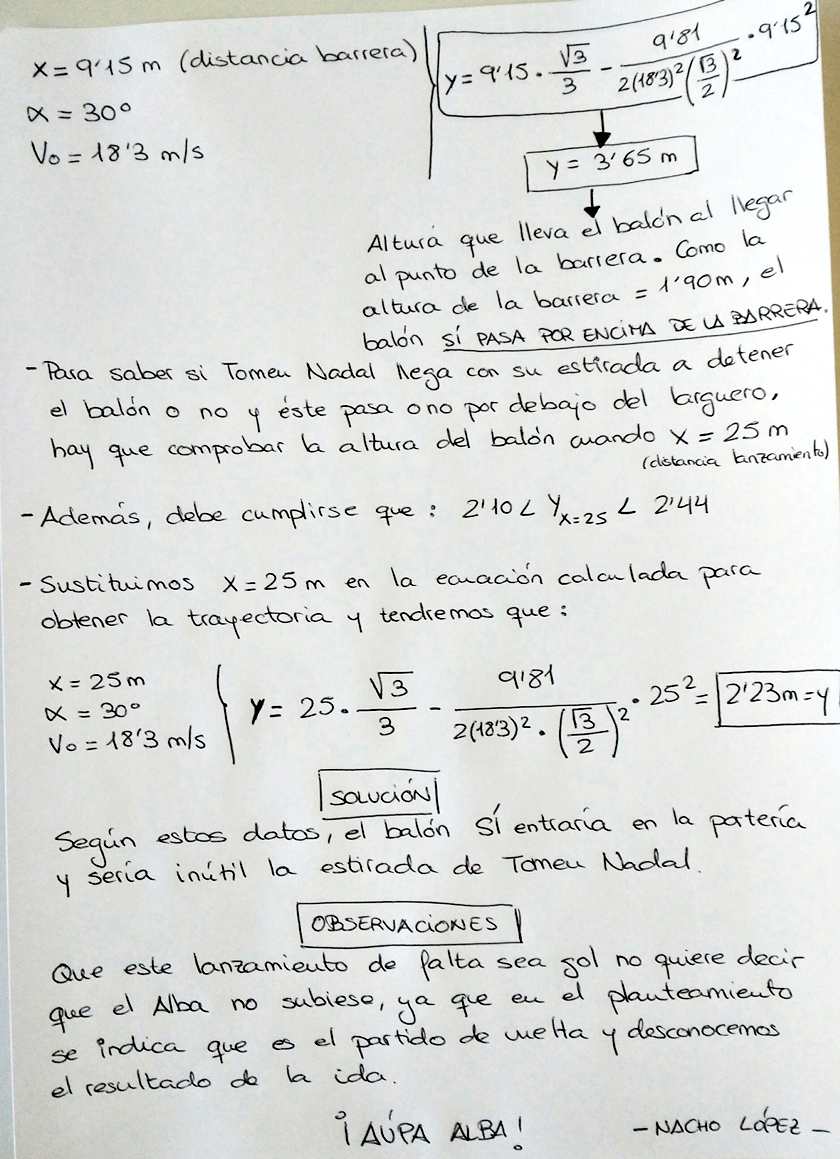 x = 9'15 m (distancia barrera)
α = 30º
V₀ = 18'3 m/s
y = 9'15 · √3/3 - 9'81/(2(18'3)² (√3/2)²) · 9'15²
y = 3'65 m
Altura que lleva el balón al llegar
al punto de la barrera. Como la
altura de la barrera = 1'90m, el
balón SÍ PASA POR ENCIMA DE LA BARRERA.
- Para saber si Tomeu Nadal llega con su estirada a detener
el balón o no y éste pasa o no por debajo del larguero,
hay que comprobar la altura del balón cuando x = 25 m
(distancia lanzamiento)
- Además, debe cumplirse que : 2'10 < y_{x=25} < 2'44
- Sustituimos x = 25 m en la ecuación calculada para
obtener la trayectoria y tendremos que :
x = 25 m
α = 30º
V₀ = 18'3 m/s
y = 25 · √3/3 - 9'81/(2(18'3)² · (√3/2)²) · 25² = 2'23m = y
SOLUCIÓN
Según estos datos, el balón SÍ entraría en la portería
y sería inútil la estirada de Tomeu Nadal.
OBSERVACIONES
Que este lanzamiento de falta sea gol no quiere decir
que el Alba no subiese, ya que en el planteamiento
se indica que es el partido de vuelta y desconocemos
el resultado de la ida.
¡AÚPA ALBA!
- NACHO LÓPEZ -